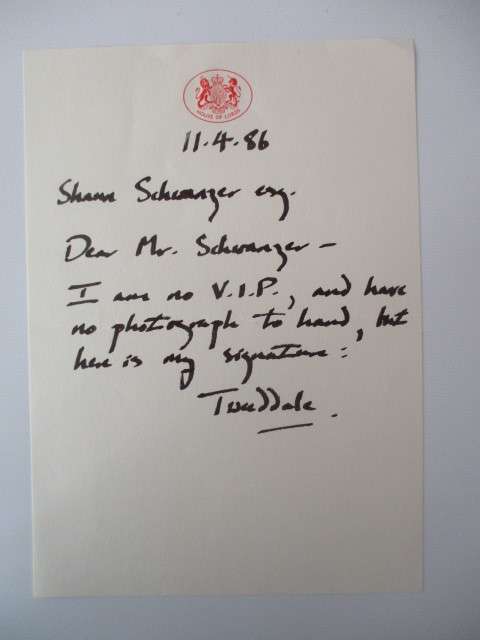 HOUSE OF LORDS
11.4.86
Shaun Schwanzer esq.
Dear Mr. Schwanzer –
I am no V.I.P., and have
no photograph to hand, but
here is my signature:
Tweeddale.